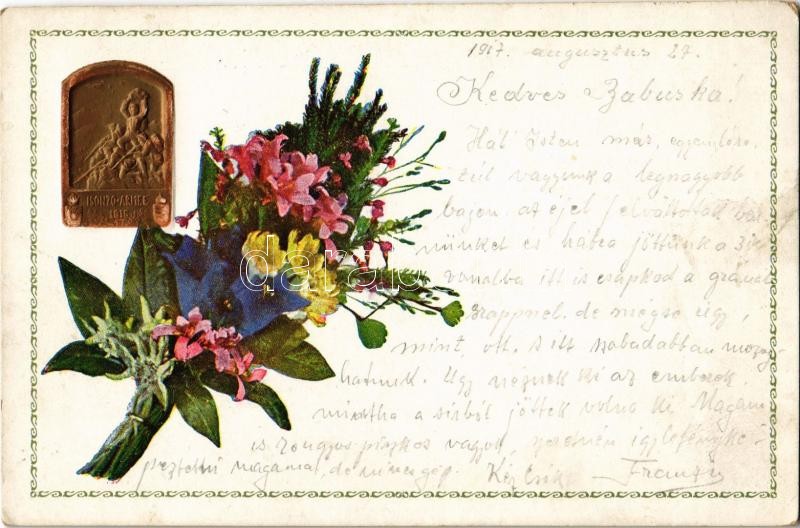 1917. augusztus 27.
Kedves Zabuska!
Hál' Isten már, egyenlőre
túl vagyunk a legnagyobb
bajon. az éjel felváltottak ben-
nünket és hátra jöttünk a 3ik
vonalba itt is csapkod a gránát
srappnel. de mégse úgy,
mint ott. S itt szabadabban mozog-
hatunk. Úgy néznek ki az emberek.
mintha a sirból jöttek volna ki Magam
is rongyos piszkos vagyok, szeretném igy lefényké-
peztetni magama, de nincs gép. Kéz Csók Franzi
ISONZO-ARMEE
1916
darab